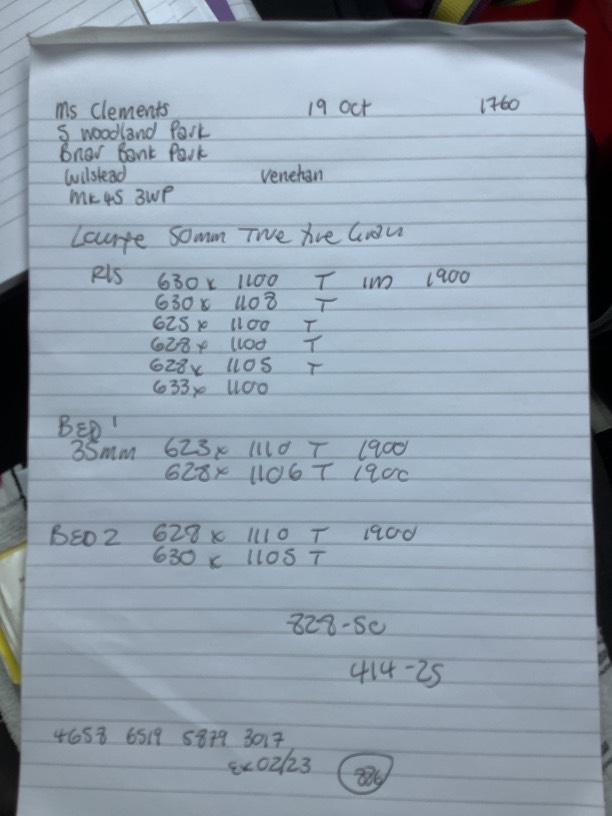 Ms Clements 19 Oct 1760
5 Woodland Park
Briar Bank Park
Wilstead Venetian
MK45 3WP
50mm
R/S 630 x 1100 T 1m 1900
630 x 1108 T
625 x 1100 T
628 x 1100 T
628 x 1105 T
633 x 1100
BED 1
35mm 623 x 1110 T 1900
628 x 1106 T 1900
BED 2 628 x 1110 T 1900
630 x 1105 T
828-50
414-25